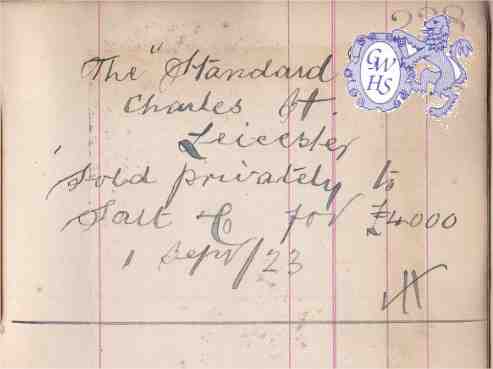 238
GWHS
The "Standard"
Charles St
Leicester
Sold privately to
Salt & Co for £4000
1 Sept/23